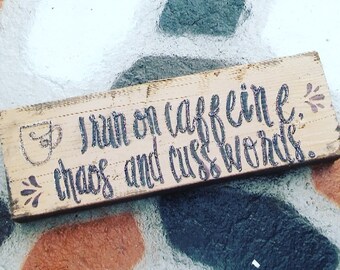 I run on caffeine,
chaos and cuss words.